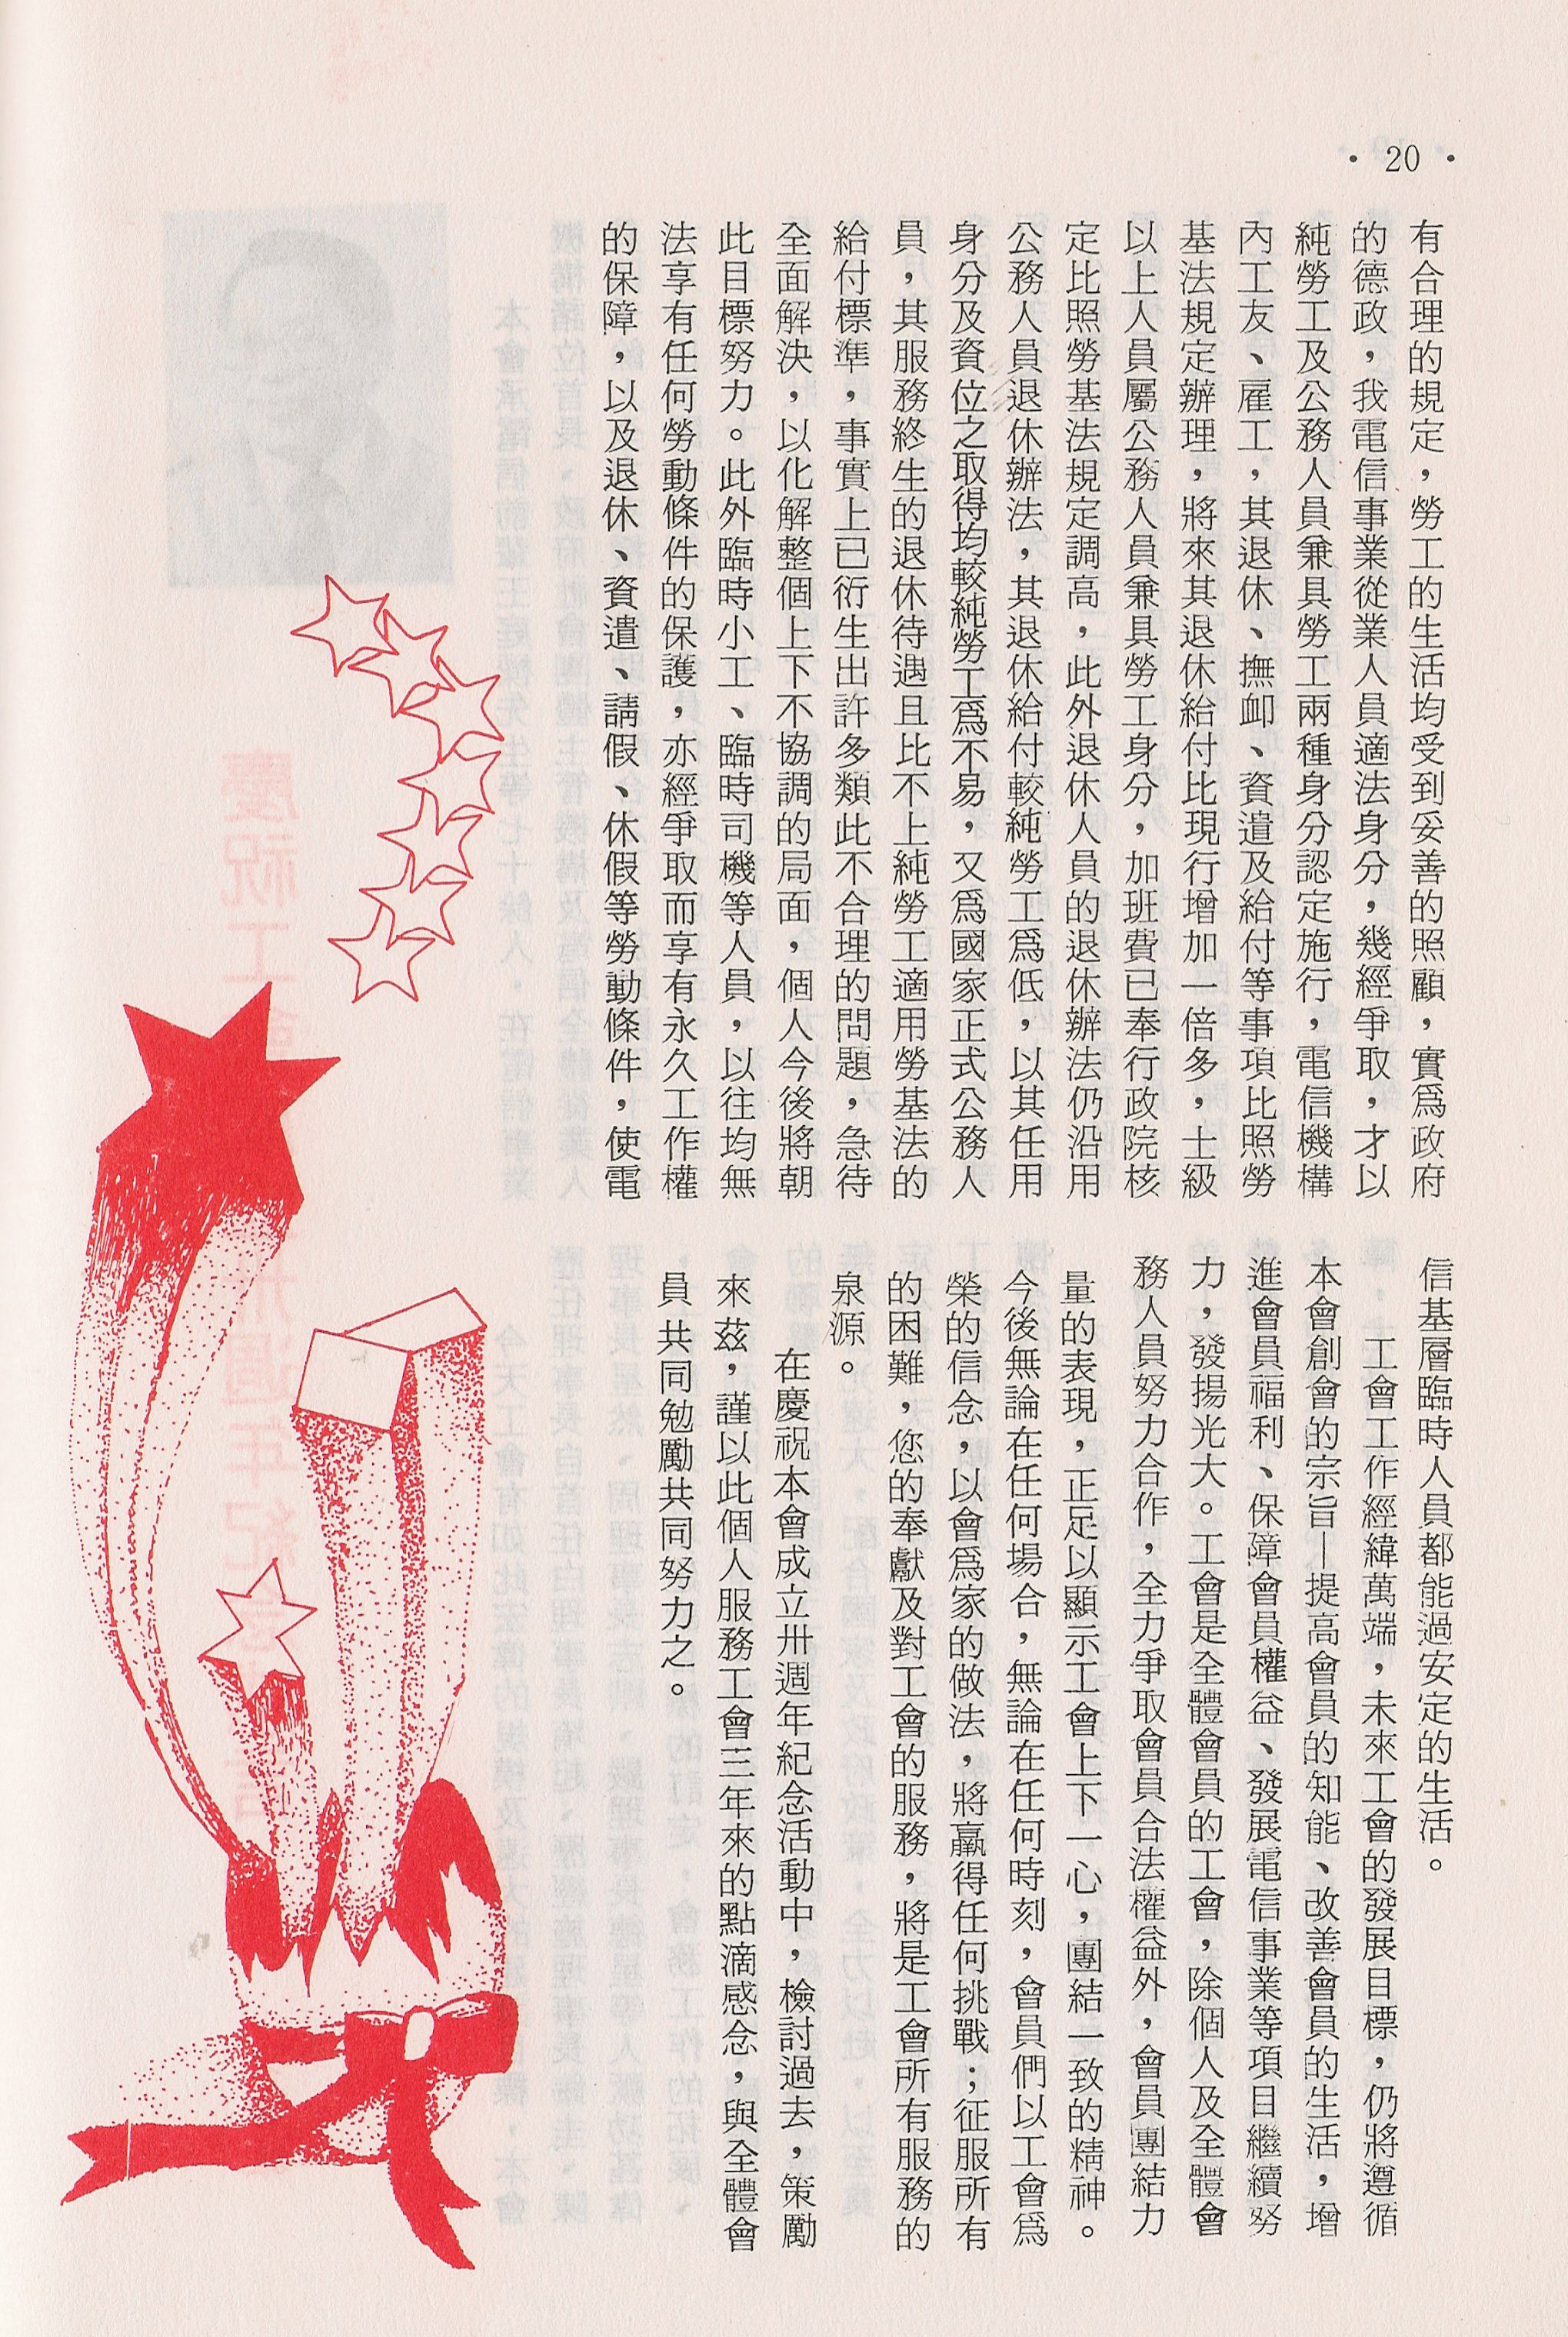 • 20 •
有合理的規定，勞工的生活均受到妥善的照顧，實爲政府
的德政，我電信事業從業人員適法身分，幾經爭取，才以
純勞工及公務人員兼具勞工兩種身分認定施行，電信機構
內工友、雇工，其退休、撫卹、資遣及給付等事項比照勞
基法規定辦理，將來其退休給付比現行增加一倍多，士級
以上人員屬公務人員兼具勞工身分，加班費已奉行政院核
定比照勞基法規定調高，此外退休人員的退休辦法仍沿用
公務人員退休辦法，其退休給付較純勞工爲低，以其任用
身分及資位之取得均較純勞工爲不易，又爲國家正式公務人
員，其服務終生的退休待遇且比不上純勞工適用勞基法的
給付標準，事實上已衍生出許多類此不合理的問題，急待
全面解決，以化解整個上下不協調的局面，個人今後將朝
此目標努力。此外臨時小工、臨時司機等人員，以往均無
法享有任何勞動條件的保護，亦經爭取而享有永久工作權
的保障，以及退休、資遣、請假、休假等勞動條件，使電
信基層臨時人員都能過安定的生活。
工會工作經緯萬端，未來工會的發展目標，仍將遵循
本會創會的宗旨—提高會員的知能、改善會員的生活，增
進會員福利、保障會員權益、發展電信事業等項目繼續努
力，發揚光大。工會是全體會員的工會，除個人及全體會
務人員努力合作，全力爭取會員合法權益外，會員團結力
量的表現，正足以顯示工會上下一心，團結一致的精神。
今後無論在任何場合，無論在任何時刻，會員們以工會爲
榮的信念，以會爲家的做法，將贏得任何挑戰；征服所有
的困難，您的奉獻及對工會的服務，將是工會所有服務的
泉源。
在慶祝本會成立卅週年紀念活動中，檢討過去，策勵
來茲，謹以此個人服務工會三年來的點滴感念，與全體會
員共同勉勵共同努力之。